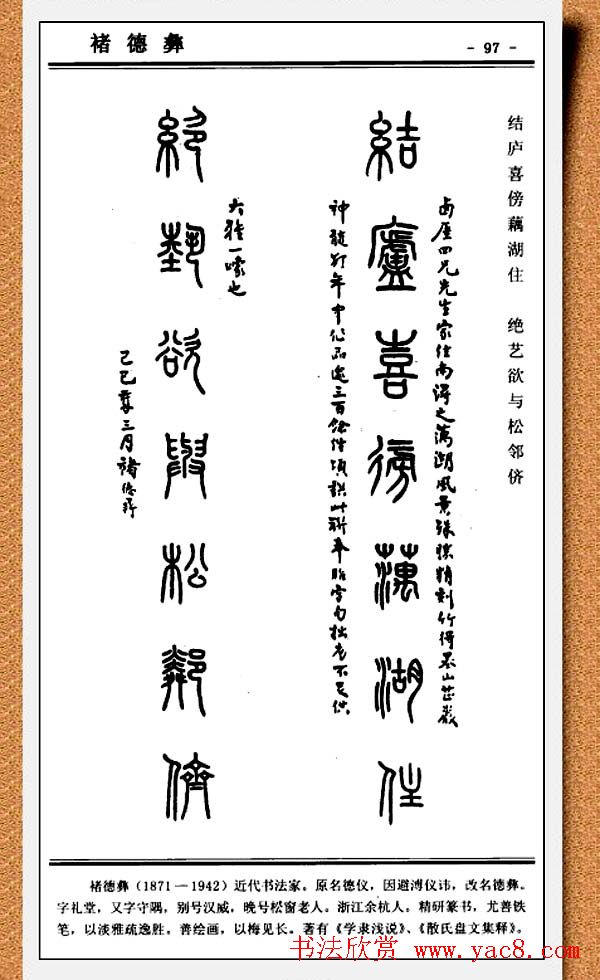 褚德彝
- 97 -
结庐喜傍藕湖住 绝艺欲与松邻侪
結廬喜傍藕湖住
四兄先生家住南潯之藕湖風景殊
年中作品逾三百餘件
絕藝欲與松鄰儕
大雅一噱也
己巳年三月褚德彝
褚德彝(1871—1942)近代书法家。原名德仪,因避溥仪讳,改名德彝。
字礼堂,又字守隅,别号汉威,晚号松窗老人。浙江余杭人。精研篆书,尤善铁
笔,以淡雅疏逸胜。善绘画,以梅见长。著有《学隶浅说》、《散氏盘文集释》。
书法欣赏 www.yac8.com